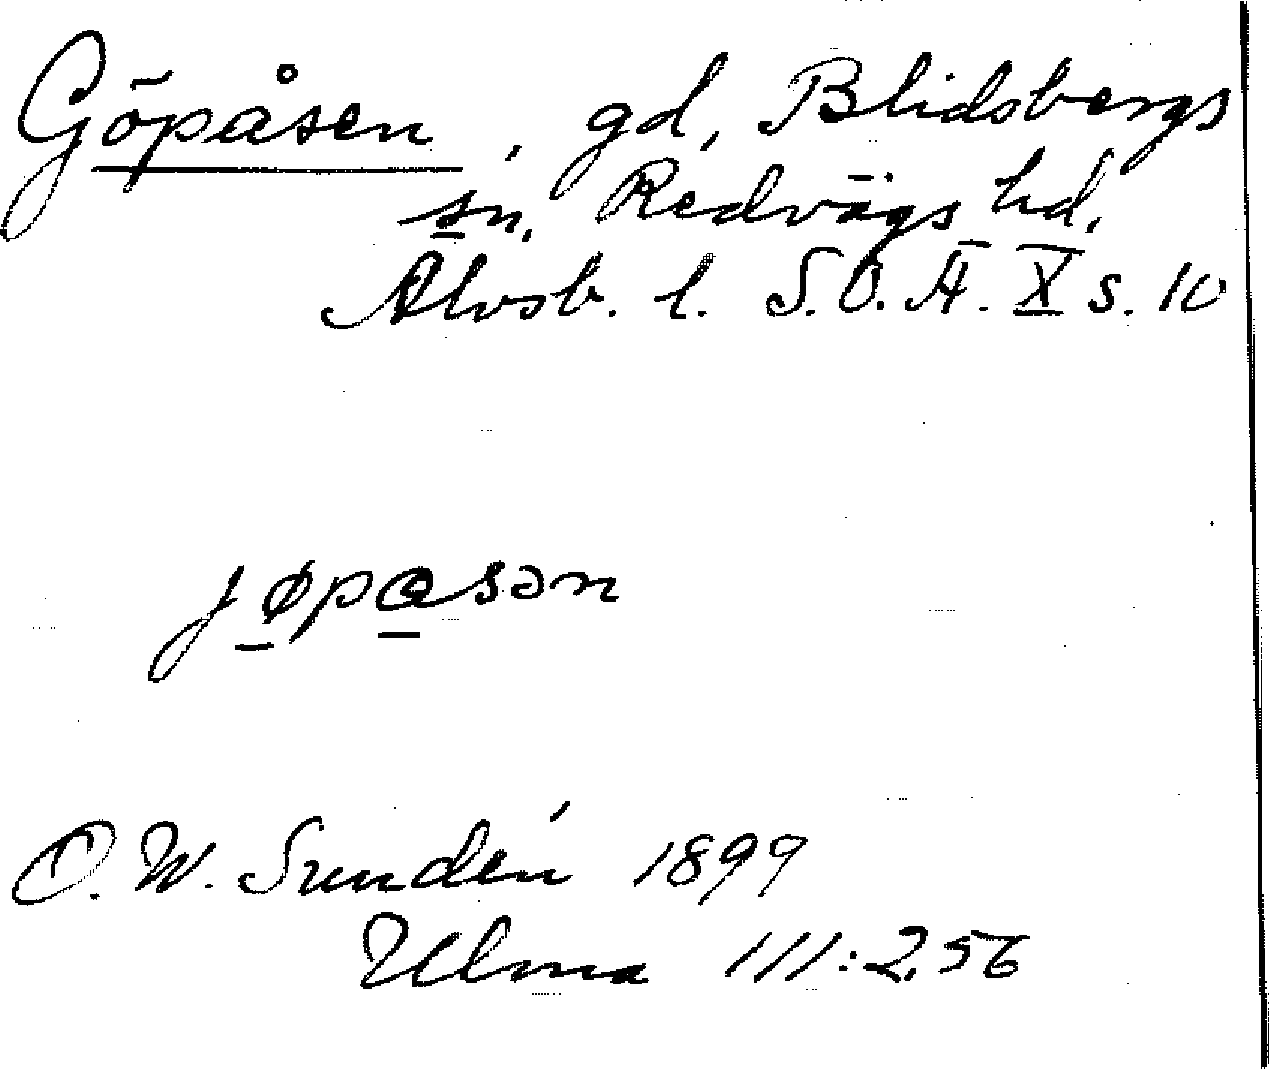 Göpåsen, gd, Blidsbergs
sn, Redvägs hd,
Älvsb. l. S.O.Ä. X s. 10
jøpasən
O. W. Sundén 1899
Ulma 111:256